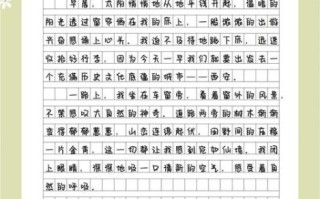 早晨，太阳悄悄地从地平线升起，温暖的
阳光透过窗帘洒在我的床上，一股
兴奋感涌上心头，我迫不及待地跳下床，迅速
收拾好行李，因为今天一早我们就要出发去一个
充满历史文化底蕴的城市——西安。
一路上，我坐在车窗旁，看着窗外的风景，
不禁感叹大自然的神奇，道路两旁的树木渐渐
变得郁郁葱葱，山峦连绵起伏，田野间的庄稼
一片金黄，这一切都让我感到宛如仙境，我闭
上眼睛，深深地吸一口清新的空气，感受着自
然的呼吸。